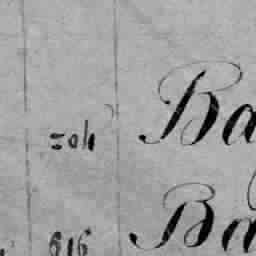 204 Ba
616 Ba